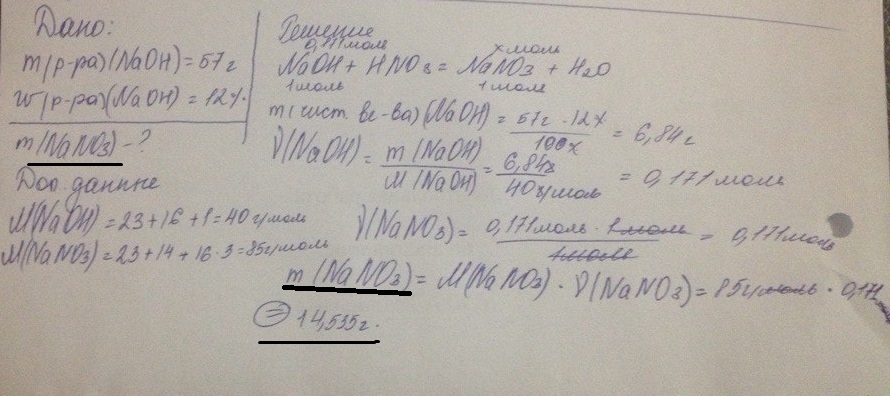 Дано:
m(р-ра)(NaOH) = 57г
w(р-ра)(NaOH) = 12%
m(NaNO3) - ?
Доп. данные
M(NaOH) = 23+16+1=40г/моль
M(NaNO3) = 23+14+16·3=85г/моль
Решение
0,171моль xмоль
NaOH + HNO3 = NaNO3 + H2O
1моль 1моль
m(чист. ве-ва)(NaOH) = 57г · 12% / 100% = 6,84г
ν(NaOH) = m(NaOH) / M(NaOH) = 6,84г / 40г/моль = 0,171моль
ν(NaNO3) = 0,171моль · 1моль / 1моль = 0,171моль
m(NaNO3) = M(NaNO3) · ν(NaNO3) = 85г/моль · 0,171моль
= 14,535г.